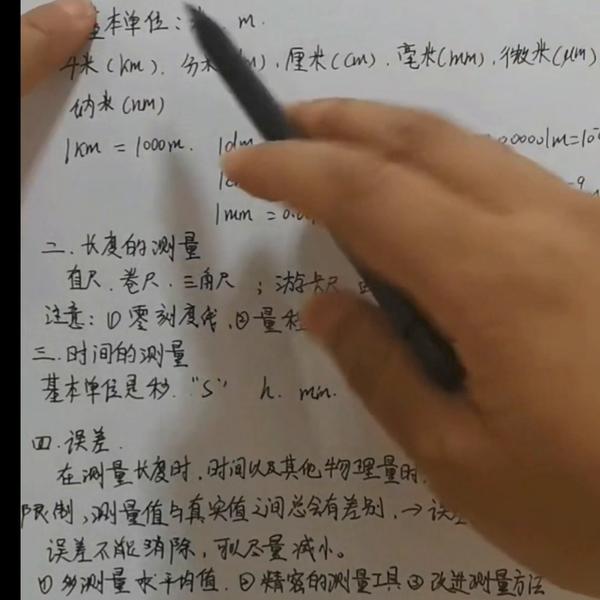 基本单位: m.
千米(km). 分米 m). 厘米(cm). 毫米(mm). 微米(μm)
纳米(nm)
1km = 1000m. 1dm 0.00001m=10
1c -9
1mm = 0.0
二.长度的测量
直尺.卷尺.三角尺;游标卡尺
注意:①零刻度线.②量程
三.时间的测量
基本单位是秒."S" h. min.
四.误差.
在测量长度时.时间以及其他物理量时.
限制,测量值与真实值之间总会有差别,→误
误差不能消除,可以尽量减小。
①多测量求平均值.②精密的测量工具③改进测量方法